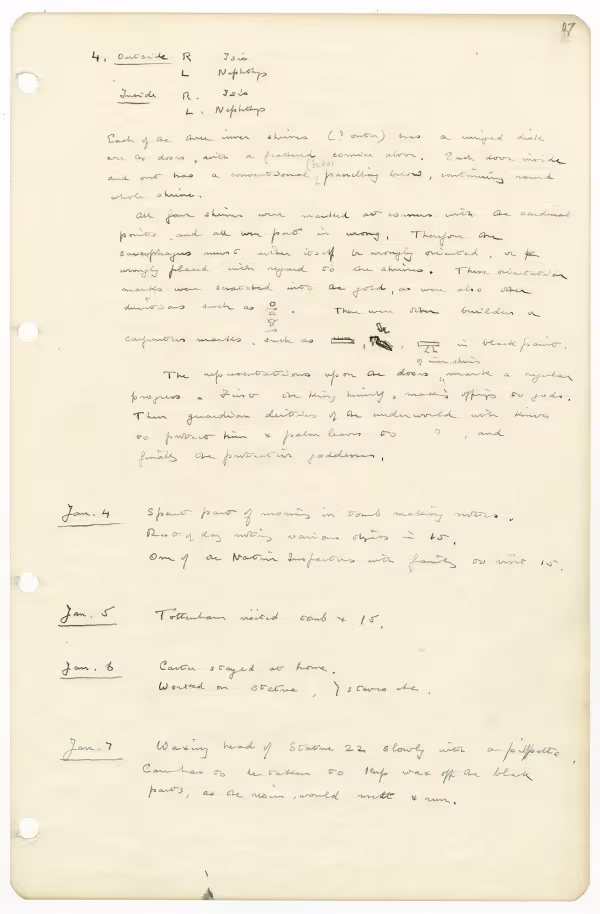 27
4. Outside R Isis
L Nephthys
Inside R. Isis
L. Nephthys
Each of the three inner shrines (? outer) has a winged disk
on the doors, with a feathered cornice above. Each door inside
and out has a conventional panelling below, continuing round
whole shrine.
All four shrines were marked at corners with the cardinal
points, and all were put in wrong. Therefore the
sarcophagus must either itself be wrongly oriented, or
wrongly placed with regard to the shrines. These orientation
marks were scratched into the gold, as were also other
directions such as . There were other builders or
carpenters marks, such as in black paint.
of inner shrines
The representations upon the doors mark a regular
progress. First the King himself, making offerings to gods.
Then guardian deities of the underworld with knives
to protect him & palm leaves to ? , and
finally the protecting goddesses.
Jan. 4 Spent part of morning in tomb making notes.
Rest of day noting various objects in 15.
One of the Native Inspectors with family to visit 15.
Jan. 5 Tottenham visited tomb & 15.
Jan. 6 Carter stayed at home.
Worked on statue, &
Jan. 7 Waxing head of Statue 22 slowly with a pipette.
Care has to be taken to keep wax off the black
parts, as the resin would melt & run.